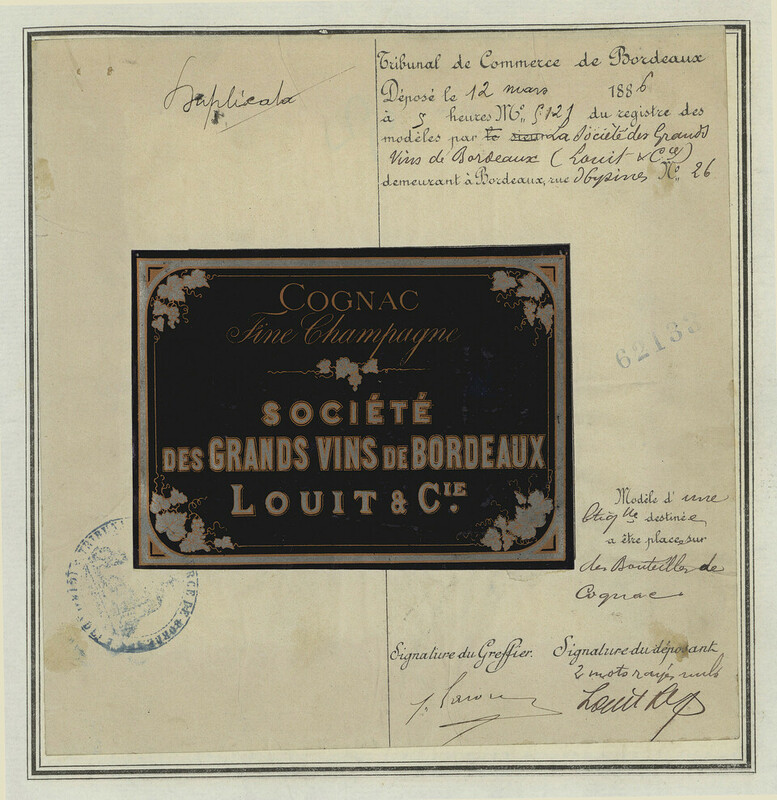 Duplicata
Tribunal de Commerce de Bordeaux
Déposé le 12 mars 1886
à 5 heures Mᵉ. du registre des
modèles par le sieur La Société des Grands
Vins de Bordeaux (Louit & Cie)
demeurant à Bordeaux, rue d'Eysines Nᵒ. 26
COGNAC
Fine Champagne
SOCIÉTÉ
DES GRANDS VINS DE BORDEAUX
LOUIT & CIE.
62133
Modèle d'une
étiqtte destinée
a être placé sur
des Bouteilles de
Cognac
Signature du Greffier. Signature du déposant
2 mots rayés nuls
Louit